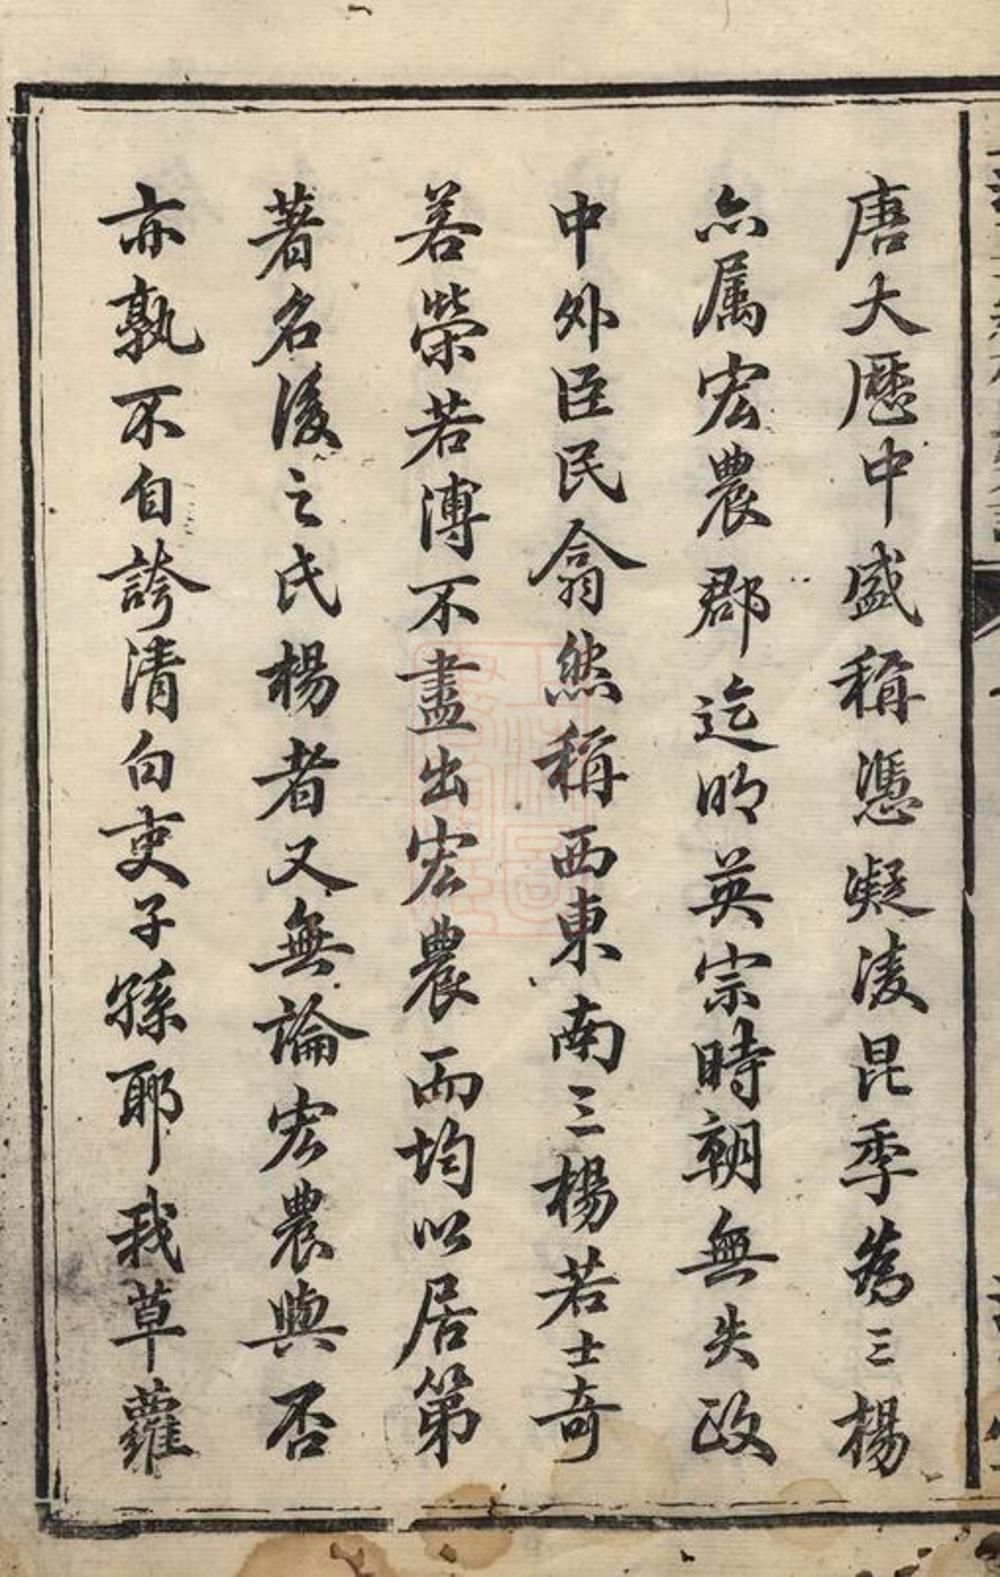 唐大歷中盛稱憑凝淩昆季為三楊
亦属宏農郡迄明英宗時朝無失政
中外臣民翕然稱西東南三楊若士奇
若榮若溥不盡出宏農而均以居第
著名後之氏楊者又無論宏農與否
亦孰不自誇清白吏子孫耶我草蘿